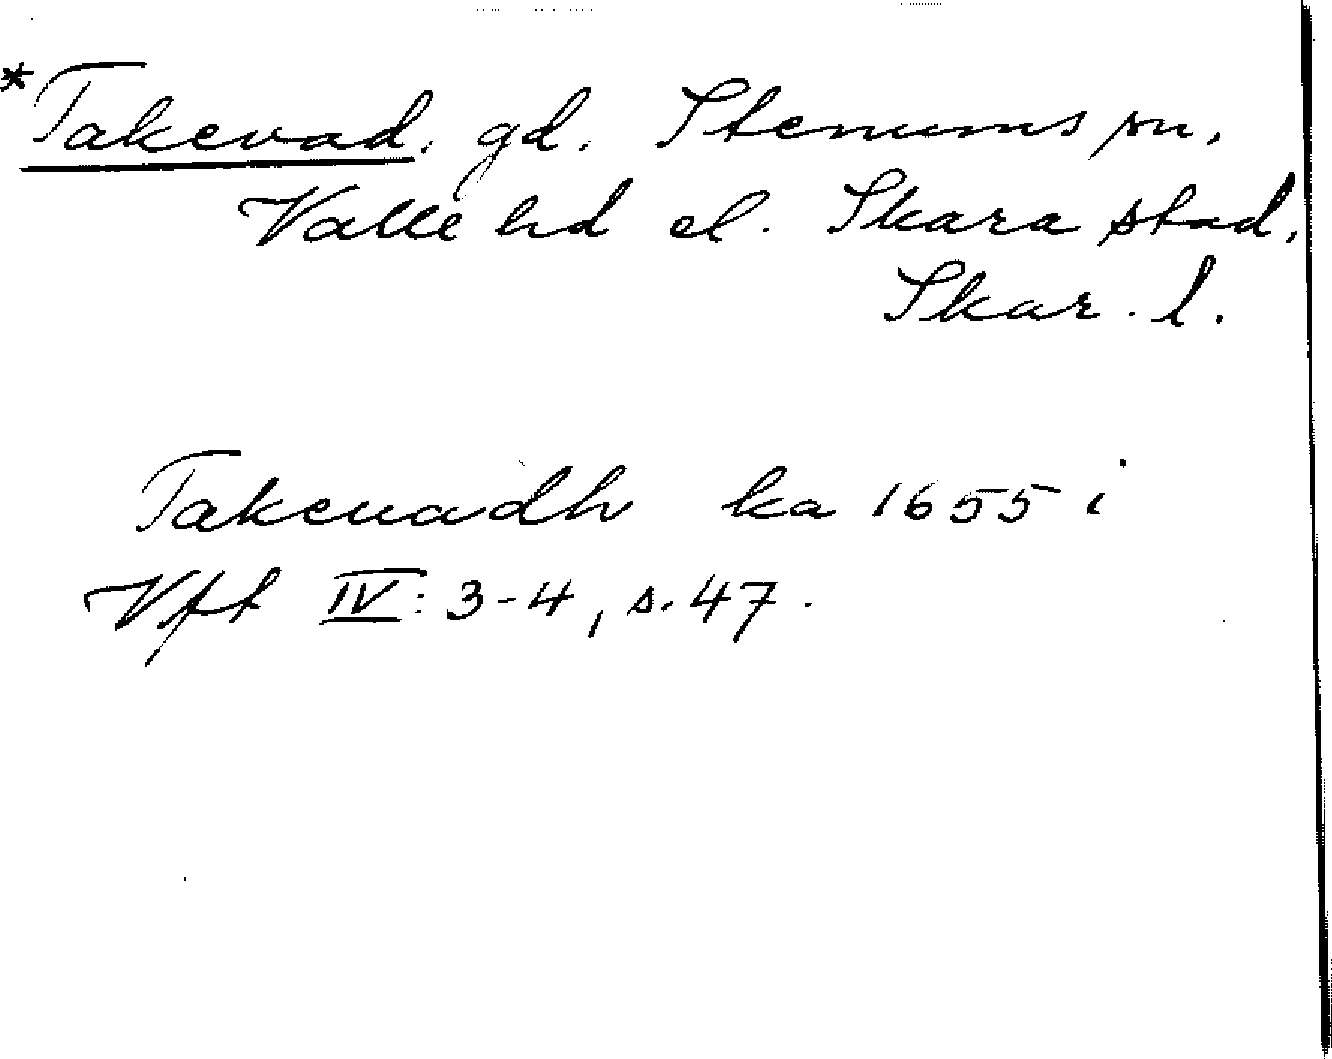 *Takevad. gd. Stenums sn,
Valle hd el. Skara stad,
Skar. l.
Takeuadh ka 1655 i
Vft IV: 3-4, s. 47.